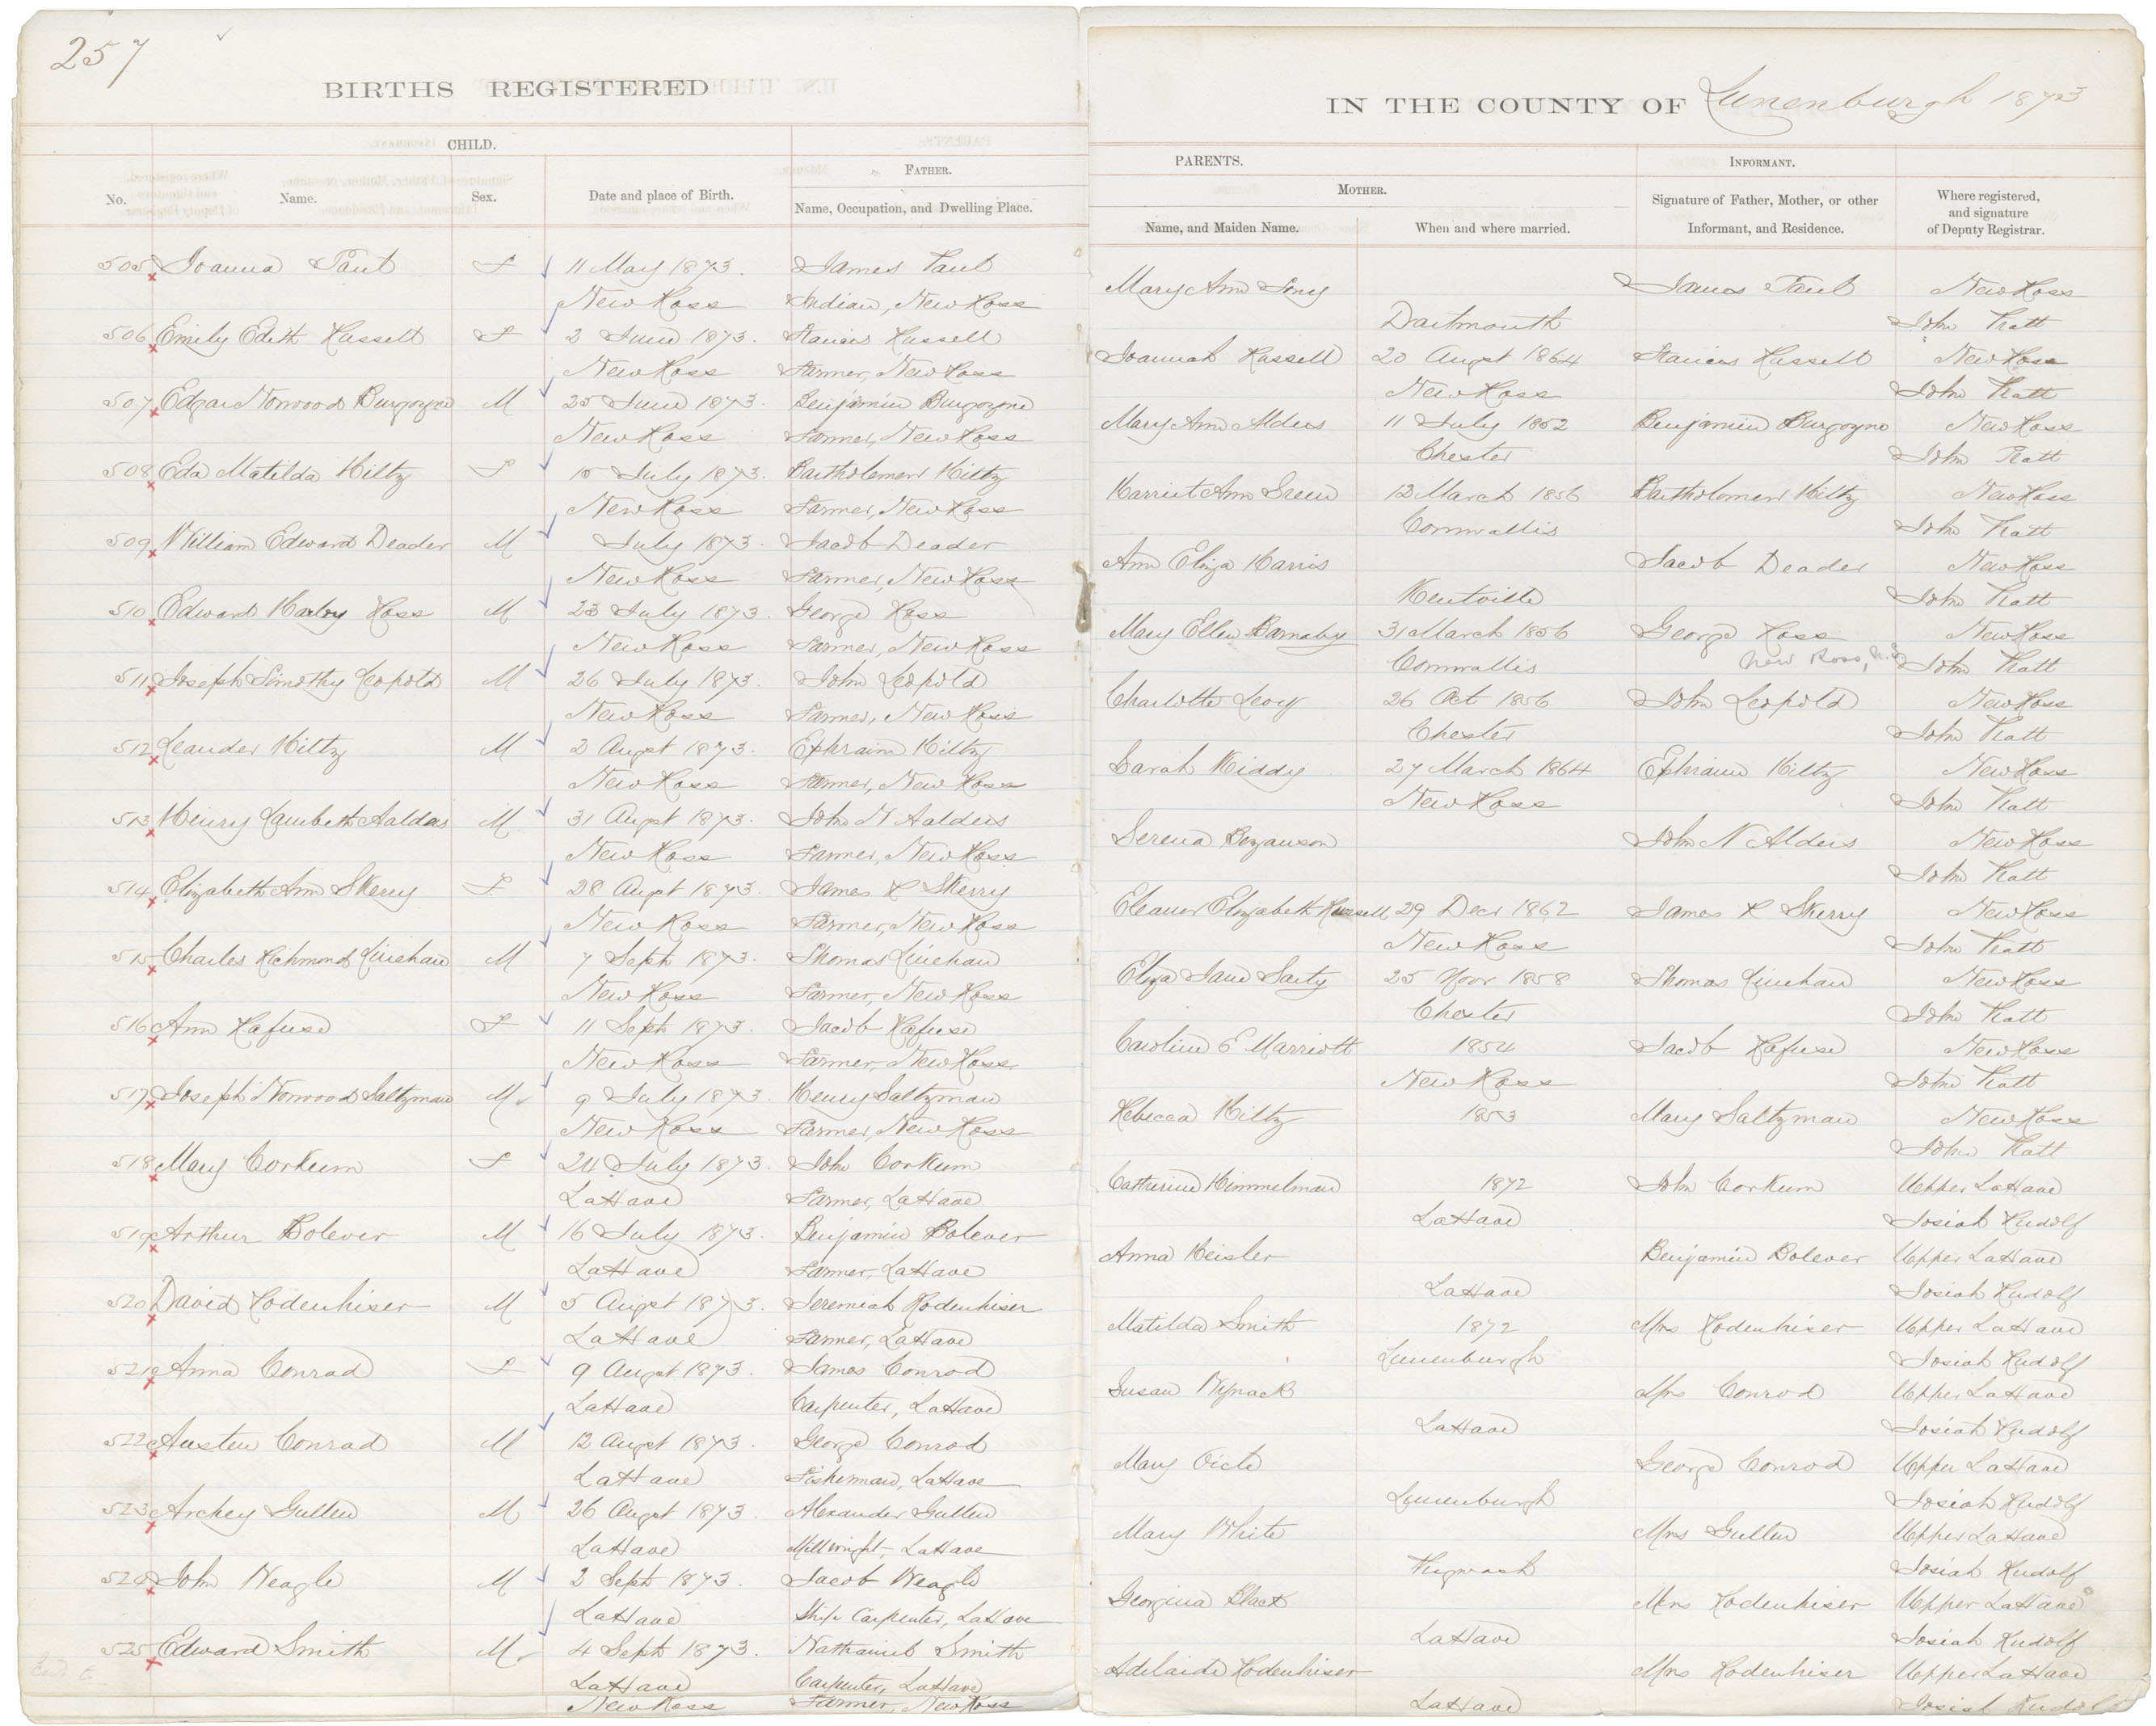 257
BIRTHS REGISTERED
IN THE COUNTY OF Lunenburgh 1873
CHILD.
PARENTS.
INFORMANT.
FATHER.
MOTHER.
No. Name. Sex. Date and place of Birth. Name, Occupation, and Dwelling Place. Name, and Maiden Name. When and where married. Signature of Father, Mother, or other Informant, and Residence. Where registered, and signature of Deputy Registrar.
505 Joanna Paul F 11 May 1873. James Paul Mary Ann James Paul New Ross
New Ross Indian, New Ross Dartmouth John Pratt
506 Emily Edith Russell F 2 June 1873. Francis Russell Joannah Russell 20 Augst 1864 Francis Russell New Ross
New Ross Farmer, New Ross New Ross John Pratt
507 Edgar Norwood Burgoyne M 25 June 1873. Benjamin Burgoyne Mary Ann Alders 11 July 1852 Benjamin Burgoyne New Ross
New Ross Farmer, New Ross Chester John Pratt
508 Eda Matilda Hiltz F 10 July 1873. Bartholemew Hiltz Harriet Ann Green 12 March 1856 Bartholomew Hiltz New Ross
New Ross Farmer, New Ross Cornwallis John Pratt
509 William Edward Deader M July 1873. Jacob Deader Ann Eliza Harris Jacob Deader New Ross
New Ross Farmer, New Ross Kentville John Pratt
510 Edward Ross M 23 July 1873. George Ross Mary Ellen Barnaby 31 March 1856 George Ross New Ross
New Ross Farmer, New Ross Cornwallis New Ross, N.S. John Pratt
511 Joseph Timothy Leopold M 26 July 1873. John Leopold Charlotte Levy 26 Oct 1856 John Leopold New Ross
New Ross Farmer, New Ross Chester John Pratt
512 Leander Hiltz M 2 Augst 1873. Ephraim Hiltz Sarah Kiddy 27 March 1864 Ephraim Hiltz New Ross
New Ross Farmer, New Ross New Ross John Pratt
513 Henry Lambeth Aalders M 31 Augst 1873. John N Aalders Serena Bezanson John N Alders New Ross
New Ross Farmer, New Ross John Pratt
514 Elizabeth Ann Skerry F 28 Augst 1873. James R Skerry Eleanor Elizabeth Russell 29 Decr 1862 James R Skerry New Ross
New Ross Farmer, New Ross New Ross John Pratt
515 Charles Richmond Linehan M 7 Septr 1873. Thomas Linehan Eliza Jane Sarty 25 Novr 1858 Thomas Linehan New Ross
New Ross Farmer, New Ross Chester John Pratt
516 Ann Rafuse F 11 Septr 1873. Jacob Rafuse Caroline E Marriott 1854 Jacob Rafuse New Ross
New Ross Farmer, New Ross New Ross John Pratt
517 Joseph Norwood Saltzman M 9 July 1873. Henry Saltzman Rebecca Hiltz 1853 Mary Saltzman New Ross
New Ross Farmer, New Ross John Pratt
518 Mary Corkum F 24 July 1873. John Corkum Catherine Himmelman 1872 John Corkum Upper LaHave
LaHave Farmer, LaHave LaHave Josiah Rudolf
519 Arthur Bolever M 16 July 1873. Benjamin Bolever Anna Heisler Benjamin Bolever Upper LaHave
LaHave Farmer, LaHave LaHave Josiah Rudolf
520 David Rodenhiser M 5 Augst 1873. Jeremiah Rodenhiser Matilda Smith 1872 Mrs Rodenhiser Upper LaHave
LaHave Farmer, LaHave Lunenburgh Josiah Rudolf
521 Anna Conrad F 9 Augst 1873. James Conrod Susan Wynack Mrs Conrod Upper LaHave
LaHave Carpenter, LaHave LaHave Josiah Rudolf
522 Austen Conrad M 12 Augst 1873. George Conrod Mary Oicle George Conrod Upper LaHave
LaHave Fisherman, LaHave Lunenburgh Josiah Rudolf
523 Archey Gullen M 26 Augst 1873. Alexander Gullen Mary White Mrs Gullen Upper LaHave
LaHave Millwright, LaHave Pugwash Josiah Rudolf
524 John Weagle M 2 Septr 1873. Jacob Weagle Georgina Black Mrs Rodenhiser Upper LaHave
LaHave Ship Carpenter, LaHave LaHave Josiah Rudolf
525 Edward Smith M 4 Septr 1873. Nathaniel Smith Adelaide Rodenhiser Mrs Rodenhiser Upper LaHave
LaHave Carpenter, LaHave LaHave Josiah Rudolf
New Ross Farmer, New Ross